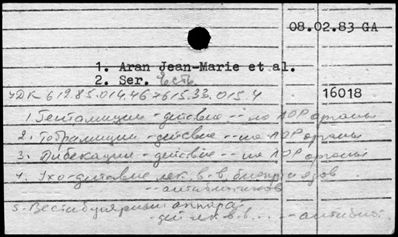 08.02.83 GA
1. Aran Jean-Marie et al.
2. Ser. есть
УДК 619.85.014.46:615.33.015.4
16018
1. Гентамицин - действие -- на ЛОР органы
2. Тобрамицин - действие -- на ЛОР органы
3. Дибекацин - действие -- на ЛОР органы
4. Ухо - действие лек. в-в
-- антибиотиков
5. Вестибулярный аппарат
дей. лек. в-в... -- антибиот.